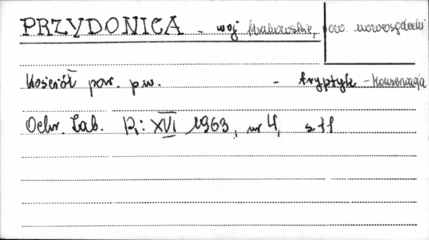 PRZYDONICA - woj krakowskie, pow. nowosądecki
Kościół par. p.w. - tryptyk - konserwacja
Ochr. Zab. R: XVI 1963, nr 4, s. 11